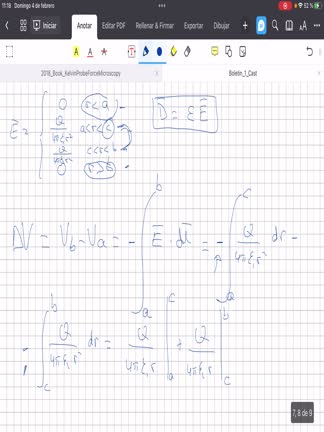 11:18 Domingo 4 de febrero 52 %
Iniciar Anotar Editar PDF Rellenar & Firmar Dibujar
2018_Book_KelvinProbeForceMicroscopy Boletin_1_Cast
0 r<a
Ē = Q/4πε₁r² a<r<c D̄ = εĒ
Q/4πε₂r² c<r<b
0 r>b
ΔV = V_b - V_a = - ∫_a^b Ē · dl̄ = - ∫_a^c Q/4πε₁r² dr -
- ∫_c^b Q/4πε₂r² dr = Q/4πε₁r |_a^c + Q/4πε₂r |_c^b
7, 8 de 9